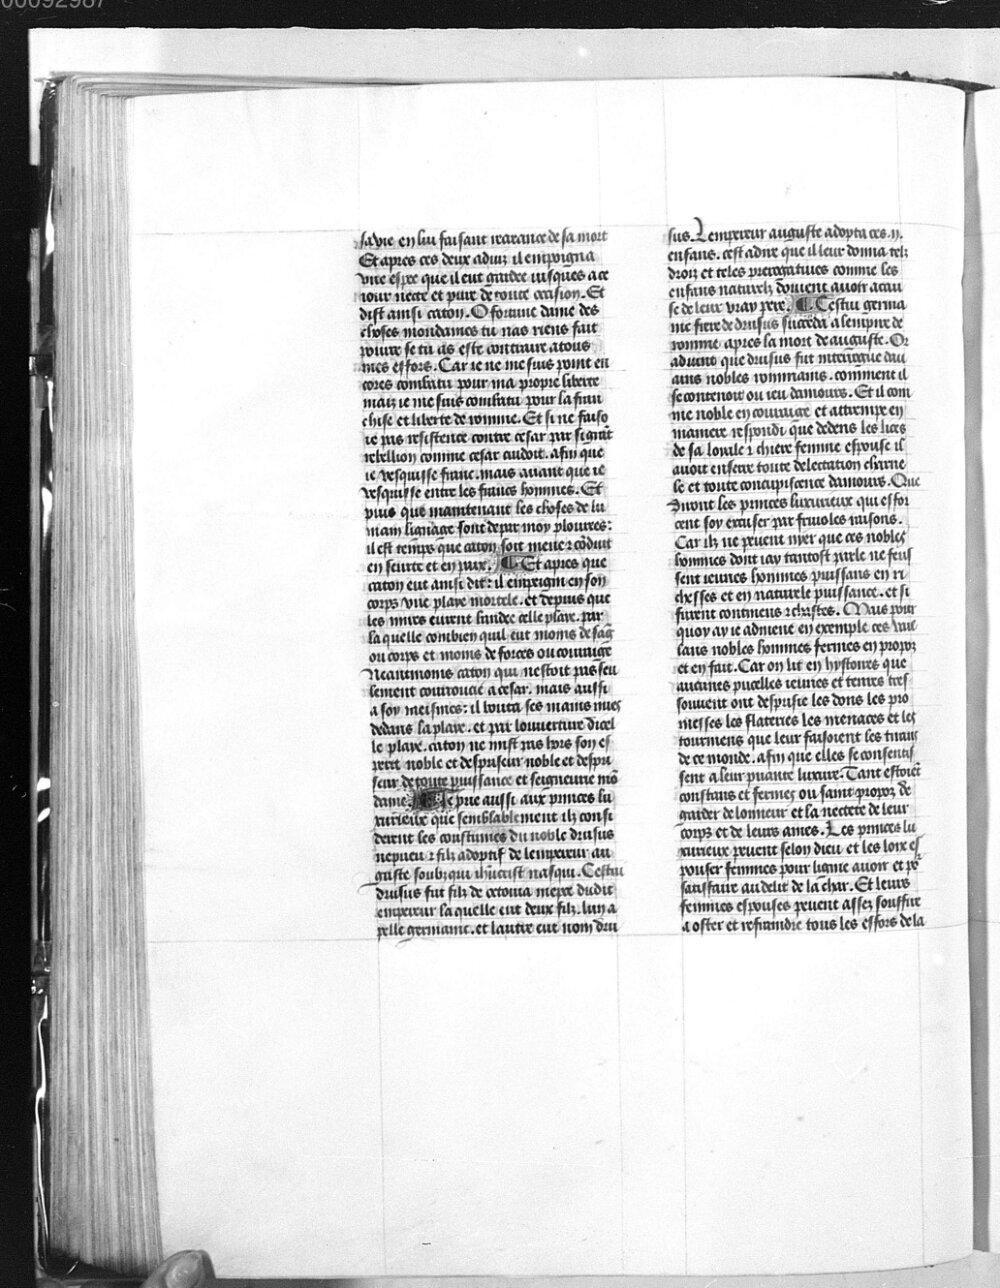 00092987
sa vie en lui faisant recreance de sa mort
Et apres ces deux aduiz il empoigna
vne espee que il eut gardee iusques a ce
iour necte et pure de toute occision. Et
dist ainsi caton. O fortune dame des
choses mondaines tu nas riens fait
pource se tu as este contraire a tous
mes effors. Car ie ne me suis point en
cores combatu pour ma propre liberte
maiz ie me suis combatu pour la fran
chise et liberte de romme. Et si ne faiso
ie pas resistence contre cesar par si grāt
rebellion comme cesar cuidoit. afin que
ie vesquisse franc. mais auant que ie
vesquisse entre les francs hommes. Et
puis que maintenant les choses de lu
main lignage sont depar moy plourees:
il est temps que caton soit mene ⁊ cōduit
en seurte et en paix. Et apres que
caton eut ainsi dit: il empreigni en son
corps vne playe mortele. et depuis que
les mires eurent bandee celle playe. par
la quelle combien quil eut moins de sāg
ou corps et moins de forces ou courage
Neantmoins caton qui nestoit pas seu
lement courroucie a cesar. mais aussi
a soy meismes: il bouta ses mains nues
dedans la playe. et par louuerture dicel
le playe. caton ne mist pas hors son es
perit noble et despriseur noble et despri
seur de toute puissance et seigneurie mō
daine. Ie prie aussi aux princes lu
xurieux que semblablement ilz consi
derent les coustumes du noble drusus
nepueu ⁊ filz adoptif de lempereur au
guste soubz qui ihūcrist nasqui. Cestui
drusus fut filz de octouia mepce dudit
empereur la quelle eut deux filz. lun a
pelle germanic. et lautre eut nom dru
sus. Lempereur auguste adopta ces .ij.
enfans. cest adire que il leur donna telz
droiz et teles prerogatiues comme les
enfans naturelz doiuent auoir a cau
se de leur vray pere. Cestui germa
nic frere de drusus succeda a lempire de
romme apres la mort de auguste. Or
aduint que drusus fut interrogue dau
cuns nobles rommains. comment il
se contenoit ou ieu damours. Et il com
me noble en courage et attrempe en
maniere respondi que dedens les lices
de sa loyale ⁊ chiere femme espouse il
auoit enserre toute delectation charne
le et toute concupiscence damours. Que
diront les princes luxurieux qui effor
cent soy excuser par friuoles raisons.
Car ilz ne peuent nyer que ces nobles
hommes dont iay tantost parle ne feus
sent ieunes hommes puissans en ri
chesses et en naturele puissance. et si
furent continens ⁊ chastes. Mais pour
quoy ay ie admene en exemple ces vail
lans nobles hommes fermes en propoz
et en fait. Car on lit en hystoires que
aucunes pucelles ieunes et tenres tres
souuent ont desprisie les dons les pro
messes les flateries les menaces et les
tourmens que leur faisoient les tirans
de ce monde. afin que elles se consentis
sent a leur puante luxure. Tant estoiēt
constans et fermes ou saint propoz de
garder de lonneur et la nectete de leur
corps et de leurs ames. Les princes lu
xurieux peuent selon dieu et les loix es
pouser femmes pour lignie auoir et po<sup>r</sup>
satisfaire au delit de la char. Et leurs
femmes espouses peuent assez souffire
a oster et refraindre tous les effors de la